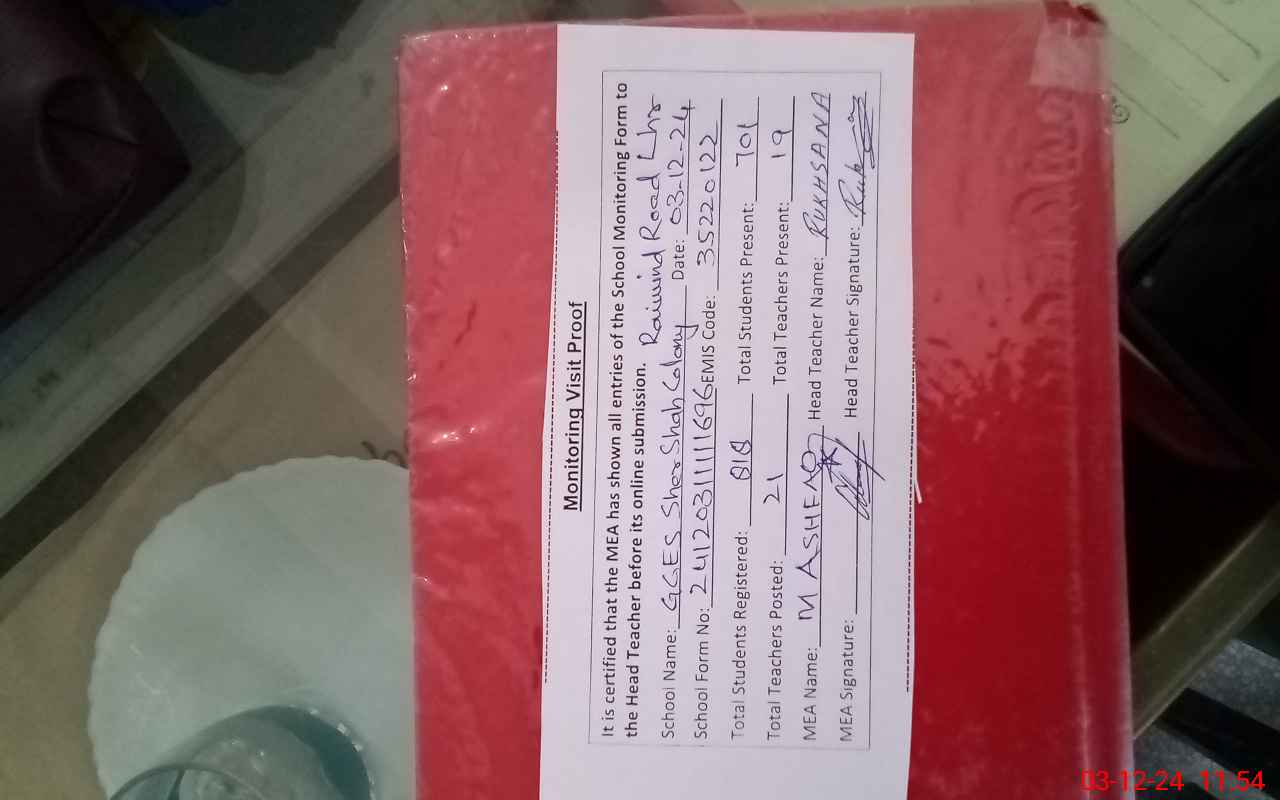 Monitoring Visit Proof
It is certified that the MEA has shown all entries of the School Monitoring Form to
the Head Teacher before its online submission.
School Name: GGES Sher Shah Colony Raiwind Road Lhr Date: 03-12-24
School Form No: 241203111111696 EMIS Code: 35220122
Total Students Registered: 818 Total Students Present: 701
Total Teachers Posted: 21 Total Teachers Present: 19
MEA Name: M Head Teacher Name: RUKHSANA
MEA Signature: Head Teacher Signature:
03-12-24 11:54